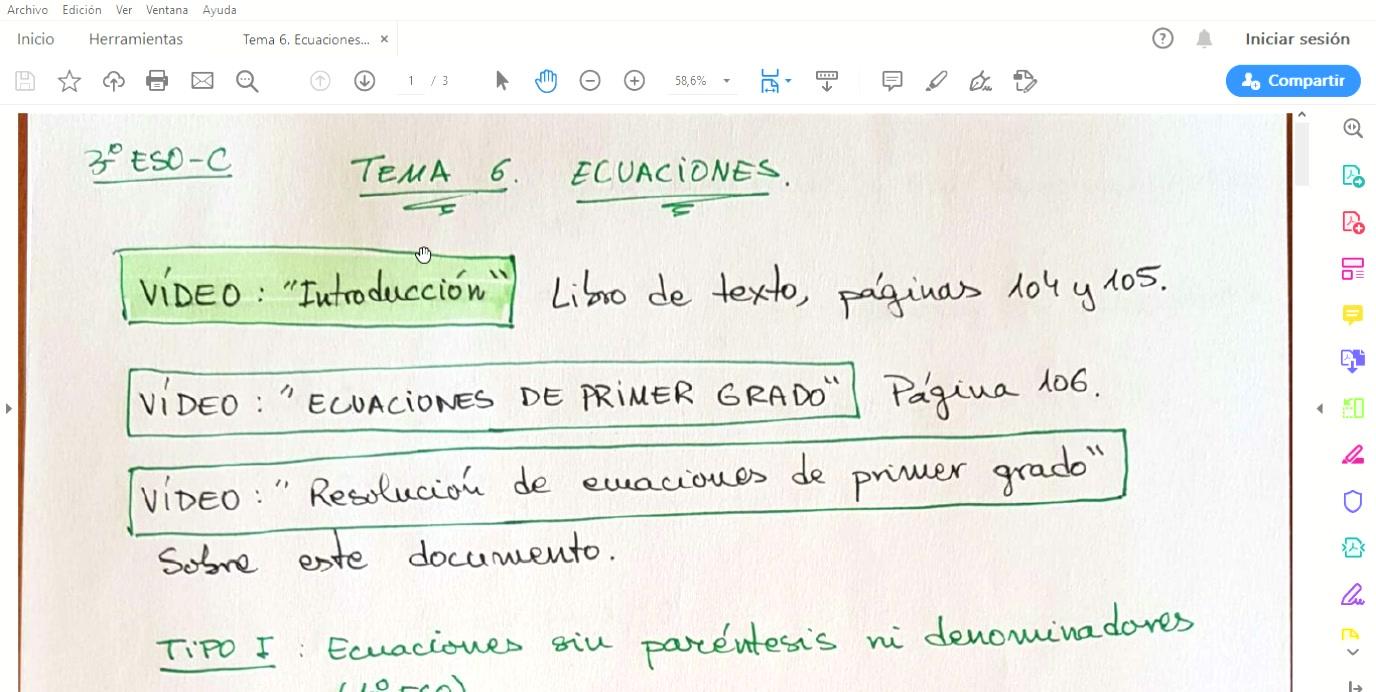 Archivo Edición Ver Ventana Ayuda
Inicio Herramientas Tema 6. Ecuaciones... × Iniciar sesión
1 / 3 58,6% Compartir
3º ESO-C TEMA 6. ECUACIONES.
VÍDEO: "Introducción" Libro de texto, páginas 104 y 105.
VÍDEO: "ECUACIONES DE PRIMER GRADO" Página 106.
VÍDEO: "Resolución de ecuaciones de primer grado"
Sobre este documento.
TIPO I: Ecuaciones sin paréntesis ni denominadores